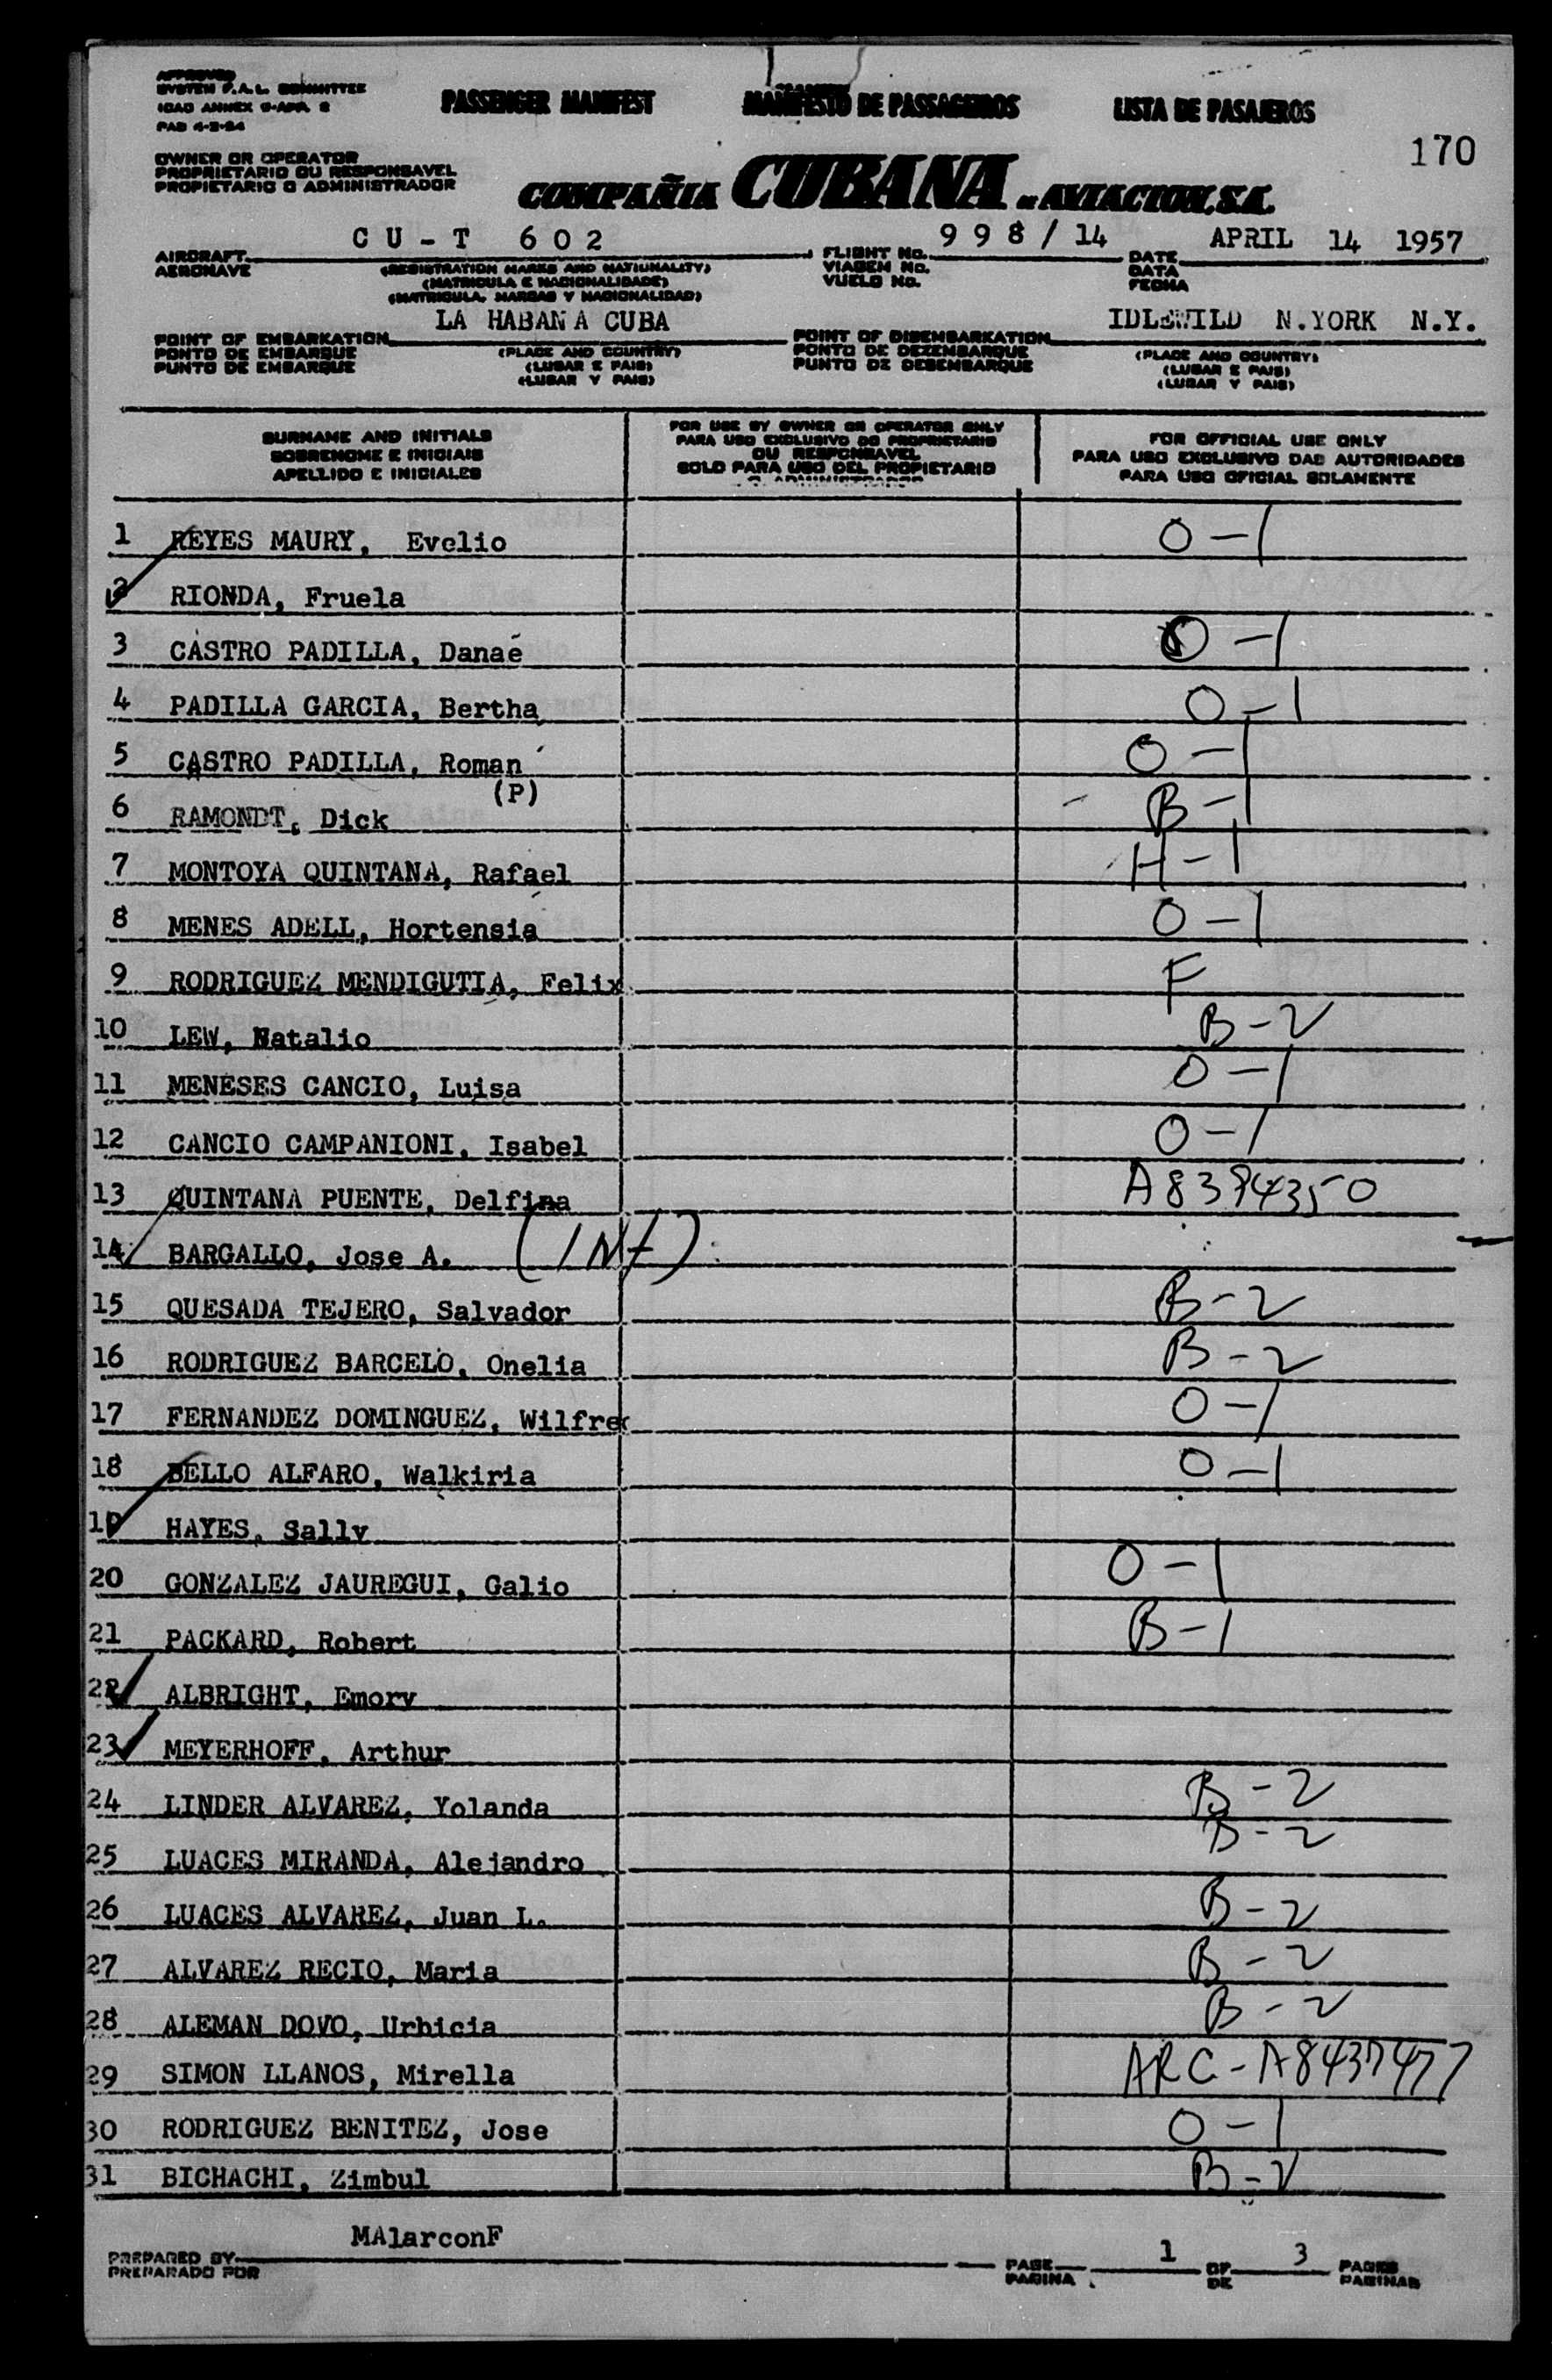 APPROVED
SYSTEM F.A.L. COMMITTEE
ICAO ANNEX 9-APP. 2
PAD 4-2-54
PASSENGER MANIFEST
MANIFESTO DE PASSAGEIROS
LISTA DE PASAJEROS
170
OWNER OR OPERATOR
PROPRIETARIO OU RESPONSAVEL
PROPIETARIO O ADMINISTRADOR
COMPAÑIA CUBANA DE AVIACION, S.A.
AIRCRAFT CU-T 602
AERONAVE
(REGISTRATION MARKS AND NATIONALITY)
(MATRICULA E NACIONALIDADE)
(MATRICULA, MARCAS Y NACIONALIDAD)
FLIGHT No. 998/14
VIAGEM No.
VUELO No.
DATE APRIL 14 1957
DATA
FECHA
POINT OF EMBARKATION LA HABANA CUBA
PONTO DE EMBARQUE
PUNTO DE EMBARQUE
(PLACE AND COUNTRY)
(LUGAR E PAIS)
(LUGAR Y PAIS)
POINT OF DISEMBARKATION IDLEWILD N.YORK N.Y.
PONTO DE DEZEMBARQUE
PUNTO DE DESEMBARQUE
(PLACE AND COUNTRY)
(LUGAR E PAIS)
(LUGAR Y PAIS)
SURNAME AND INITIALS
SOBRENOME E INICIAIS
APELLIDO E INICIALES
FOR USE BY OWNER OR OPERATOR ONLY
PARA USO EXCLUSIVO DO PROPRIETARIO
OU RESPONSAVEL
SOLO PARA USO DEL PROPIETARIO
O ADMINISTRADOR
FOR OFFICIAL USE ONLY
PARA USO EXCLUSIVO DAS AUTORIDADES
PARA USO OFICIAL SOLAMENTE
1 REYES MAURY, Evelio O-1
2 RIONDA, Fruela
3 CASTRO PADILLA, Danaé O-1
4 PADILLA GARCIA, Bertha O-1
5 CASTRO PADILLA, Roman O-1
(P)
6 RAMONDT, Dick B-1
7 MONTOYA QUINTANA, Rafael H-1
8 MENES ADELL, Hortensia O-1
9 RODRIGUEZ MENDIGUTIA, Felix F
10 LEW, Natalio B-2
11 MENESES CANCIO, Luisa O-1
12 CANCIO CAMPANIONI, Isabel O-1
13 QUINTANA PUENTE, Delfina A8394350
14 BARGALLO, Jose A. (INF)
15 QUESADA TEJERO, Salvador B-2
16 RODRIGUEZ BARCELO, Onelia B-2
17 FERNANDEZ DOMINGUEZ, Wilfre O-1
18 BELLO ALFARO, Walkiria O-1
19 HAYES, Sally
20 GONZALEZ JAUREGUI, Galio O-1
21 PACKARD, Robert B-1
22 ALBRIGHT, Emory
23 MEYERHOFF, Arthur
24 LINDER ALVAREZ, Yolanda B-2
25 LUACES MIRANDA, Alejandro B-2
26 LUACES ALVAREZ, Juan L. B-2
27 ALVAREZ RECIO, Maria B-2
28 ALEMAN DOVO, Urbicia B-2
29 SIMON LLANOS, Mirella ARC-A8437477
30 RODRIGUEZ BENITEZ, Jose O-1
31 BICHACHI, Zimbul B-2
PREPARED BY MAlarconF
PREPARADO POR
PAGE 1 OF 3 PAGES
PAGINA DE PAGINAS